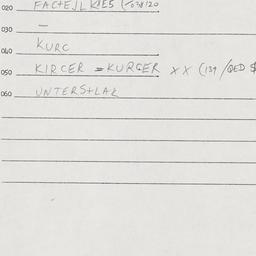 020 FACTEJLKIES
030 —
040 KURC
050 KIRCER = KURGER X X (139 /QED $
060 UNTERSTLAK